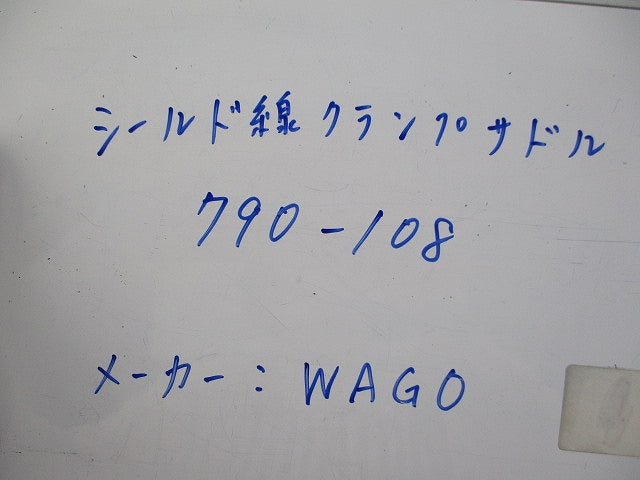 シールド線クランプサドル
790-108
メーカー：WAGO